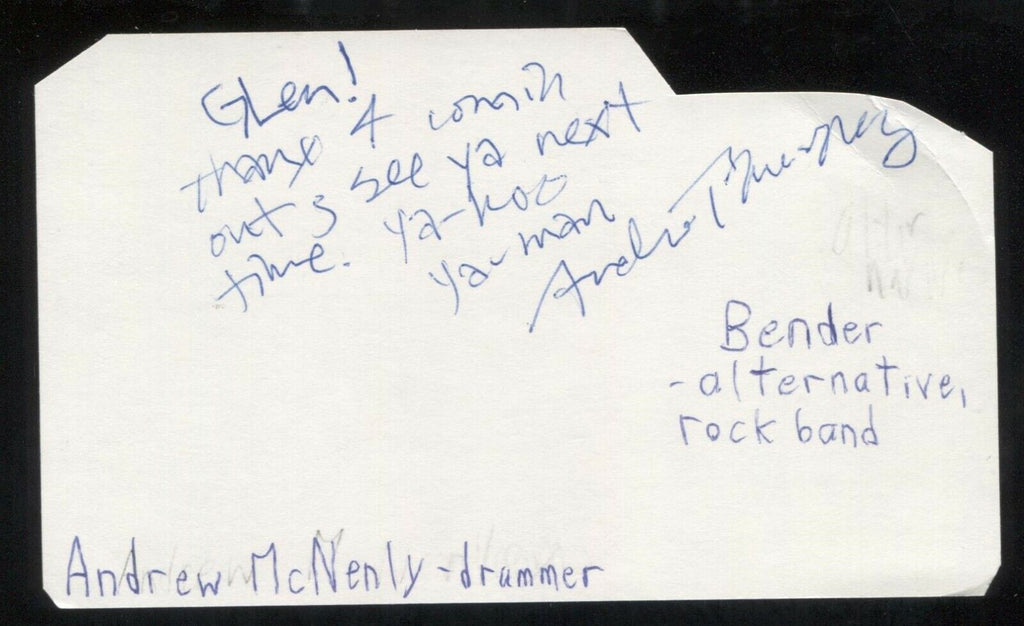 Glen!
thanx 4 comin
out & see ya next
time. ya-hoo
ya-man
Bender
-alternative,
rock band
Andrew McNenly -drummer